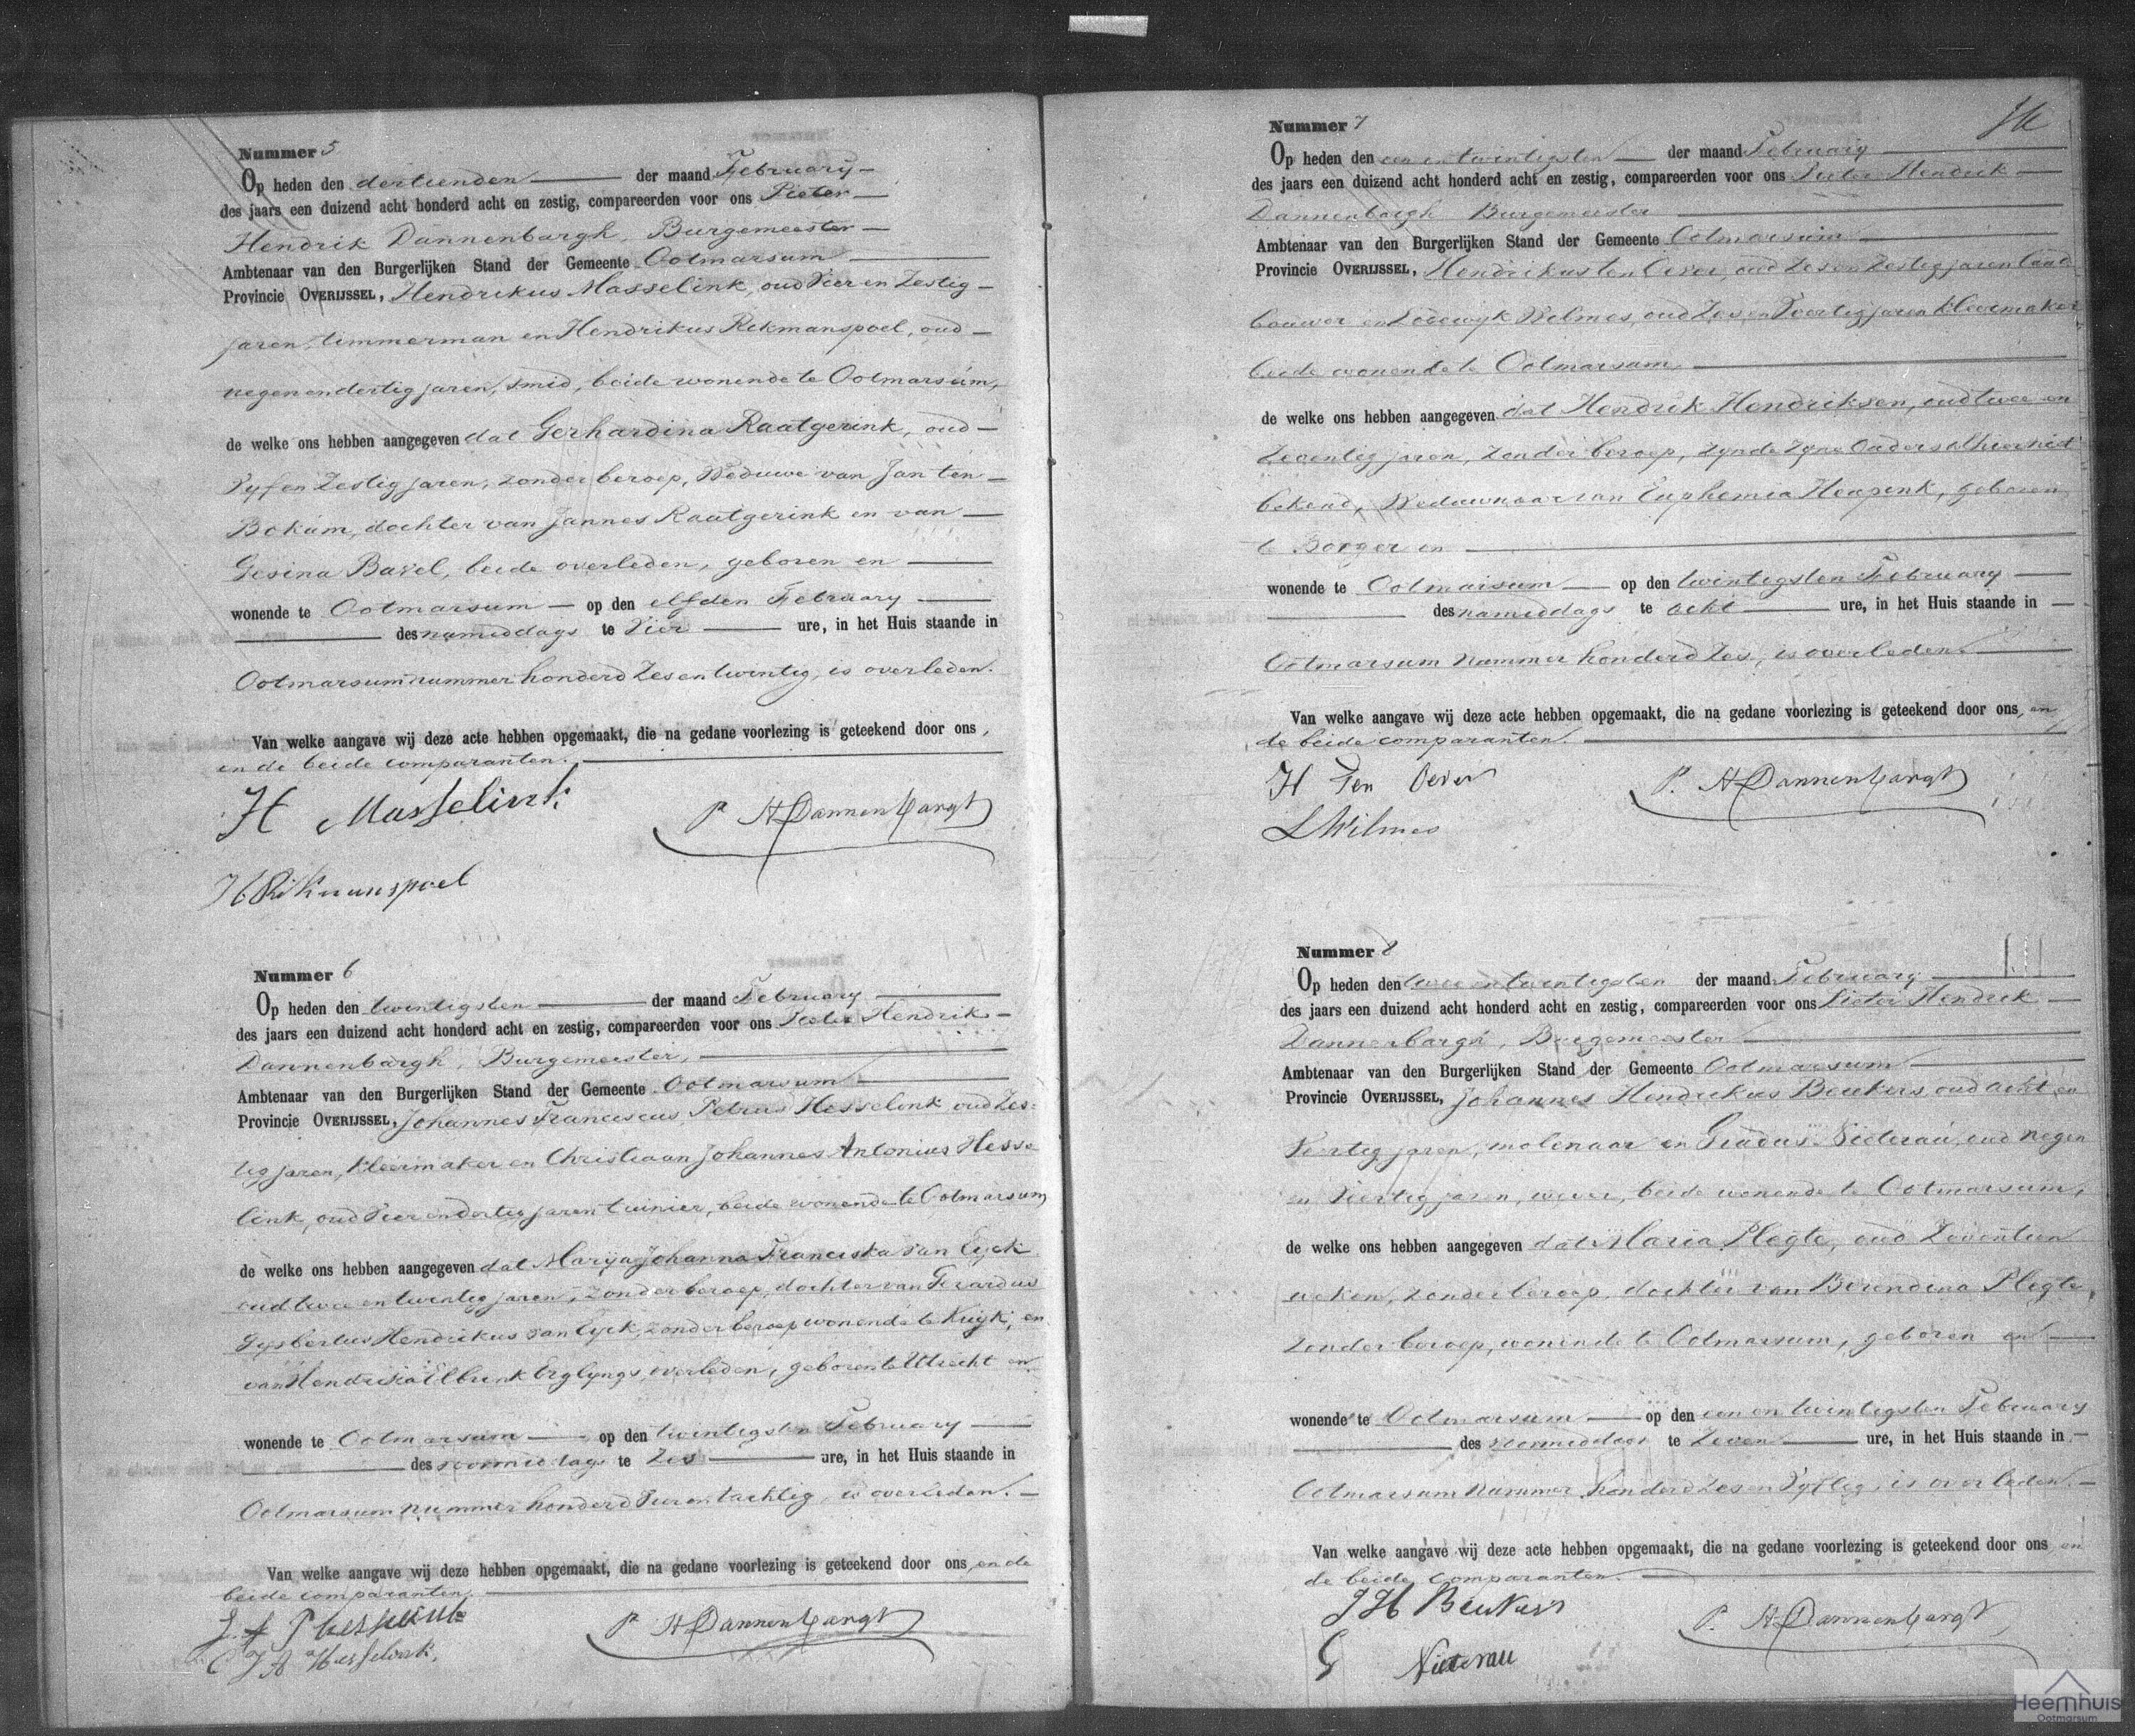 Nummer 5
Op heden den dertienden der maand February
des jaars een duizend acht honderd acht en zestig, compareerden voor ons Pieter
Hendrik Dannenbargh, Burgemeester
Ambtenaar van den Burgerlijken Stand der Gemeente Ootmarsum
Provincie OVERIJSSEL, Hendrikus Masselink, oud Vier en Zestig
jaren, timmerman en Hendrikus Rekmanspoel, oud
negenendertig jaren, smid, beide wonende te Ootmarsum,
de welke ons hebben aangegeven dat Gerhardina Raatgerink, oud
Vyf en Zestig jaren, zonder beroep, Weduwe van Jan ten
Bokum, dochter van Jannes Raatgerink en van
Gesina Bavel, beide overleden, geboren en
wonende te Ootmarsum op den elfden February
des namiddags te Vier ure, in het Huis staande in
Ootmarsum nummer honderd Zes en twintig, is overleden.
Van welke aangave wij deze acte hebben opgemaakt, die na gedane voorlezing is geteekend door ons,
en de beide comparanten.
H Masselink
P. H Dannenbargh
H Rikmanspoel
Nummer 6
Op heden den twintigsten der maand February
des jaars een duizend acht honderd acht en zestig, compareerden voor ons Pieter Hendrik
Dannenbargh, Burgemeester,
Ambtenaar van den Burgerlijken Stand der Gemeente Ootmarsum
Provincie OVERIJSSEL, Johannes Franciscus Petrus Hesselink oud Zes
tig jaren, kleermaker en Christiaan Johannes Antonius Hesse
link, oud Vier en dertig jaren tuinier, beide wonende te Ootmarsum
de welke ons hebben aangegeven dat Marya Johanna Franciska van Eyck
oud twee en twintig jaren, zonder beroep, dochter van Gerardus
Gysbertus Hendrikus van Eyck, zonder beroep wonende te Kuyk, en
van Hendrika Elbrink overleden, geboren te Utrecht en
wonende te Ootmarsum op den twintigsten February
des voormiddags te Zes ure, in het Huis staande in
Ootmarsum nummer honderd Vier en tachtig, is overleden.
Van welke aangave wij deze hebben opgemaakt, die na gedane voorlezing is geteekend door ons, en de
beide comparanten.
P. H Dannenbargh
C J A Hesselink.
Nummer 7
Op heden den een en twintigsten der maand February
des jaars een duizend acht honderd acht en zestig, compareerden voor ons Pieter Hendrik
Dannenbargh Burgemeester
Ambtenaar van den Burgerlijken Stand der Gemeente Ootmarsum
Provincie OVERIJSSEL, Hendrikus ten Oever, oud Zes en Zestig jaren Land
bouwer en Lodewyk Wilmes, oud Zes en Veertig jaren kleermaker
beide wonende te Ootmarsum
de welke ons hebben aangegeven dat Hendrik Hendriksen, oud twee en
Zeventig jaren, zonder beroep, zynde zyne Ouders alhier niet
bekend, Weduwnaar van Euphemia Heapink, geboren
te Borger en
wonende te Ootmarsum op den twintigsten February
des namiddags te acht ure, in het Huis staande in
Ootmarsum nummer honderd Zes, is overleden
Van welke aangave wij deze acte hebben opgemaakt, die na gedane voorlezing is geteekend door ons, en
de beide comparanten.
H Ten Oever
P. H Dannenbargh
L Wilmes
Nummer 8
Op heden den twee en twintigsten der maand February
des jaars een duizend acht honderd acht en zestig, compareerden voor ons Pieter Hendrik
Dannenbargh, Burgemeester
Ambtenaar van den Burgerlijken Stand der Gemeente Ootmarsum
Provincie OVERIJSSEL, Johannes Hendrikus Beukers oud acht en
Veertig jaren, molenaar en Gradus Niterau, oud negen
en Veertig jaren, wever, beide wonende te Ootmarsum,
de welke ons hebben aangegeven dat Maria Plegte, oud Zeventien
weken, zonder beroep, dochter van Berendina Plegte,
zonder beroep, wonende te Ootmarsum, geboren en
wonende te Ootmarsum op den een en twintigsten February
des voormiddags te Zeven ure, in het Huis staande in
Ootmarsum Nummer honderd Zes en Vyftig, is overleden.
Van welke aangave wij deze acte hebben opgemaakt, die na gedane voorlezing is geteekend door ons en
de beide comparanten.
J H Beukers
P. H Dannenbargh
G Niterau
Heemhuis
Ootmarsum